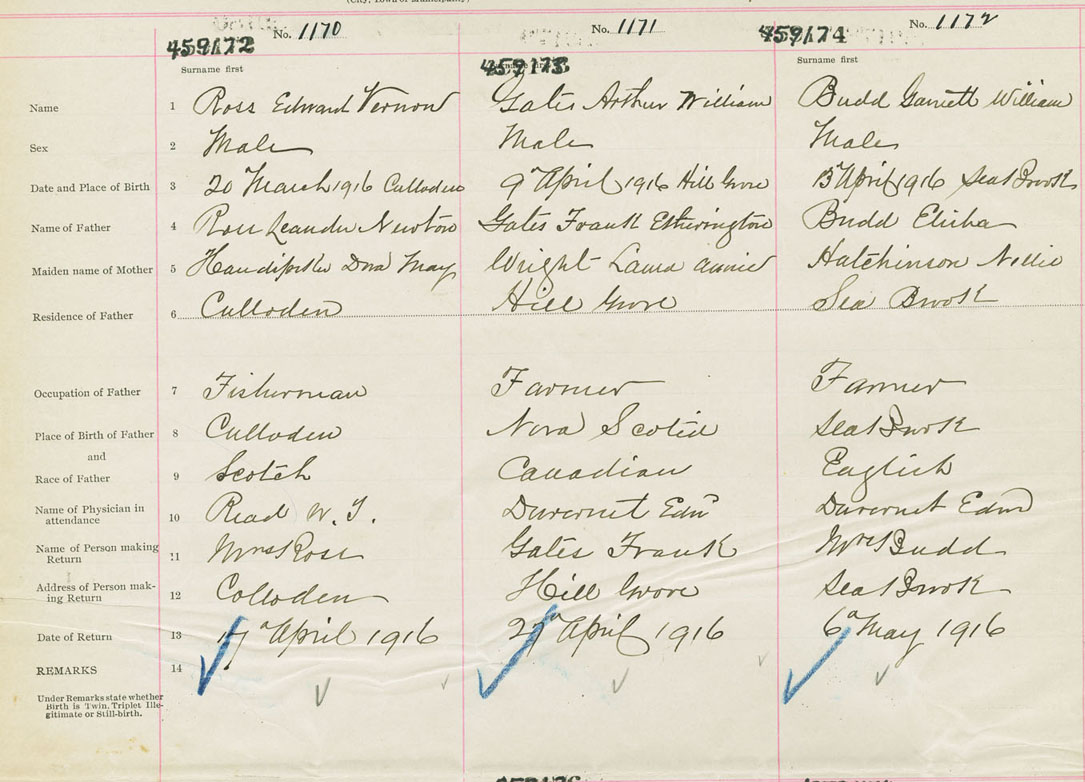 (City, Town or Municipality)
No. 1170 No. 1171 No. 1172
459172 459173 459174
Surname first Surname first Surname first
Name 1 Ross Edward Vernon Gates Arthur William Budd Garnett William
Sex 2 Male Male Male
Date and Place of Birth 3 20 March 1916 Culloden 9th April 1916 Hill Grove 13th April 1916 Sea Brook
Name of Father 4 Ross Leander Newton Gates Frank Etherington Budd Elisha
Maiden name of Mother 5 May Wright Laura Annie Hutchinson Nillie
Residence of Father 6 Culloden Hill Grove Sea Brook
Occupation of Father 7 Fisherman Farmer Farmer
Place of Birth of Father 8 Culloden Nova Scotia Sea Brook
and
Race of Father 9 Scotch Canadian English
Name of Physician in
attendance 10 Read W. J. Duvernet Edw Duvernet Edw
Name of Person making
Return 11 Mrs Ross Gates Frank Mrs Budd
Address of Person mak-
ing Return 12 Colloden Hill Grove Sea Brook
Date of Return 13 17th April 1916 27th April 1916 6th May 1916
REMARKS 14
Under Remarks state whether
Birth is Twin, Triplet Ille-
gitimate or Still-birth.